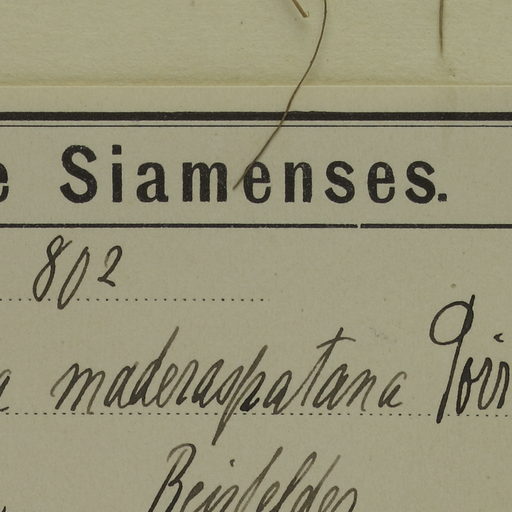 e Siamenses.
802
a maderaspatana Poir
Reisfelder